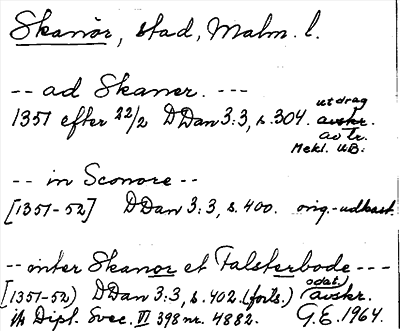 Skanör, stad, Malm. l.
-- ad Skaner. ---
1351 efter 22/2 DDan 3:3, s. 304. utdrag
avskr.
av tr.
Mekl. UB:
-- in Sconore --
[1351-52] DDan 3:3, s. 400. orig.-udkast.
-- inter Skanor et Falsterbode ---
[1351-52) DDan 3:3, s. 402. (forts.) odat. avskr.
Dipl. Svec. VI 398 nr. 4882. G.E. 1964.